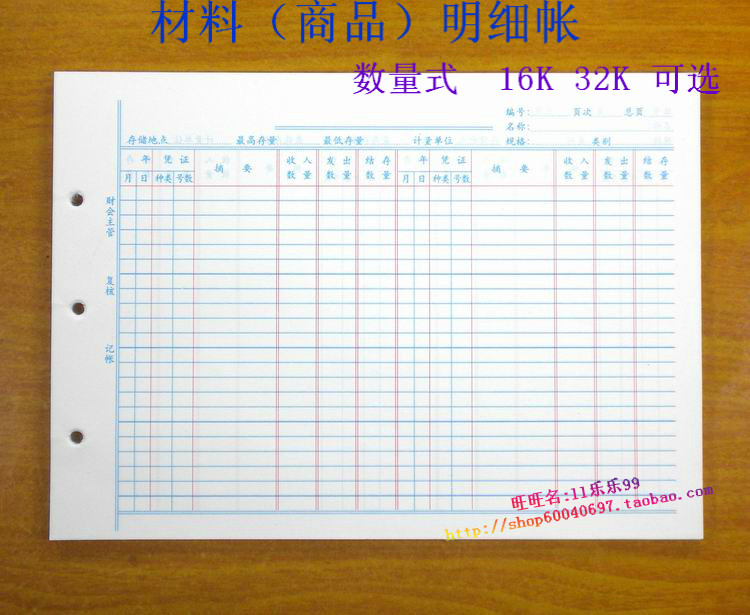 材料（商品）明细帐
数量式 16K 32K 可选
编号: 页次 总页
名称:
存储地点 最高存量 最低存量 计量单位 规格: 类别
年 凭证 摘要 收入数量 发出数量 结存数量 年 凭证 摘要 收入数量 发出数量 结存数量
月 日 种类 号数 月 日 种类 号数
财会主管
复核
记帐
旺旺名:ll乐乐99
http://shop60040697.taobao.com